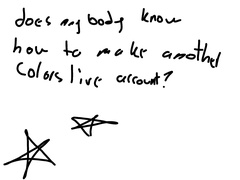 does anybody know
how to make another
Colors live account?